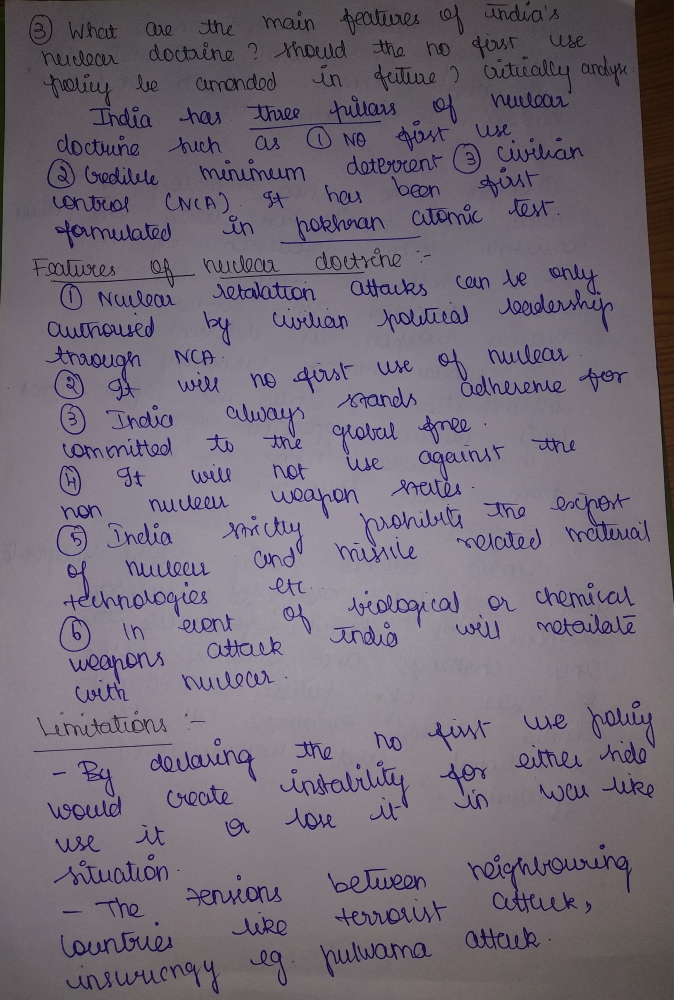 ③ What are the main features of India's
nuclear doctrine? Should the no first use
policy be amended in future? Critically analyse.
India has three pillars of nuclear
doctrine such as ① No first use
② Credible minimum deterrent ③ Civilian
control (NCA). It has been first
formulated in pokhran atomic test.
Features of nuclear doctrine :-
① Nuclear retalation attacks can be only
authorised by civilian political leadership
through NCA.
② It will no first use of nuclear.
③ India always stands adherence for
committed to the global free.
④ It will not use against the
non nuclear weapon states.
⑤ India strictly prohibits the export
of nuclear and missile related material
technologies etc.
⑥ In event of biological or chemical
weapons attack India will retailate
with nuclear.
Limitations :-
- By declaring the no first use policy
would create instability for either side
use it or lose it in war like
situation.
- The tensions between neighbouring
countries like terrorist attack,
insuricngy eg. pulwama attack.